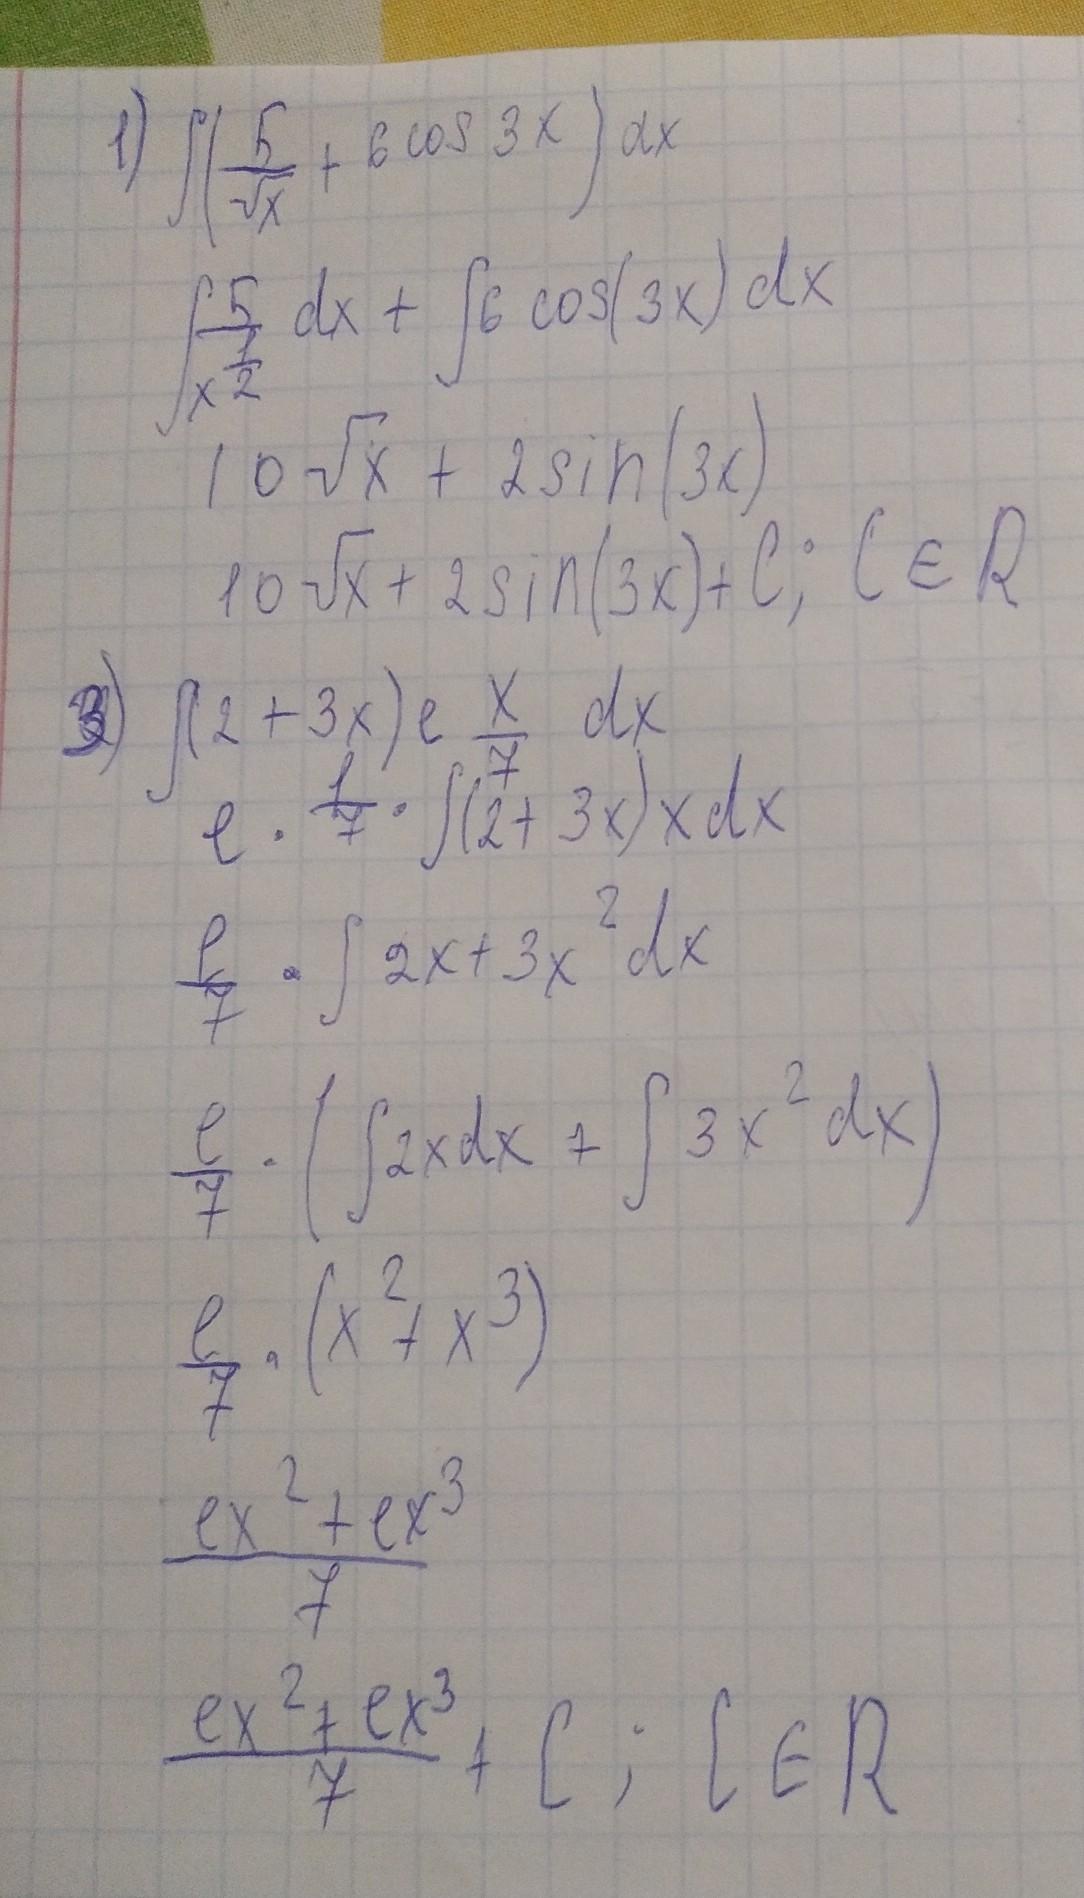 1) ∫(5/√x + 6 cos 3x) dx
∫ 5/x^(1/2) dx + ∫6 cos(3x) dx
10√x + 2sin(3x)
10√x + 2sin(3x) + C; C ∈ R
3) ∫(2 + 3x) e x/7 dx
e · 1/7 · ∫(2 + 3x) x dx
e/7 · ∫ 2x + 3x² dx
e/7 · (∫2xdx + ∫3x² dx)
e/7 · (x² + x³)
(ex² + ex³)/7
(ex² + ex³)/7 + C; C ∈ R